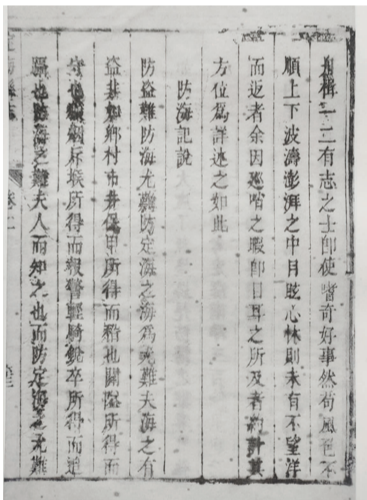 舟楫一二有志之士卽使嗜奇好事然苟風色不
順上下波濤澎湃之中目眩心怵則未有不望洋
而返者余因巡哨之暇卽目耳之所及者約計其
方位為詳述之如此
防海記說
防盜難防海尤難防定海之海為尤難夫海之有
盜非如鄉村市井保甲所得而稽也關隘所得而
守也烟斥堠所得而報警輕騎銳卒所得而追
也防海之難夫人而知之也而防定海之尤難
卷二